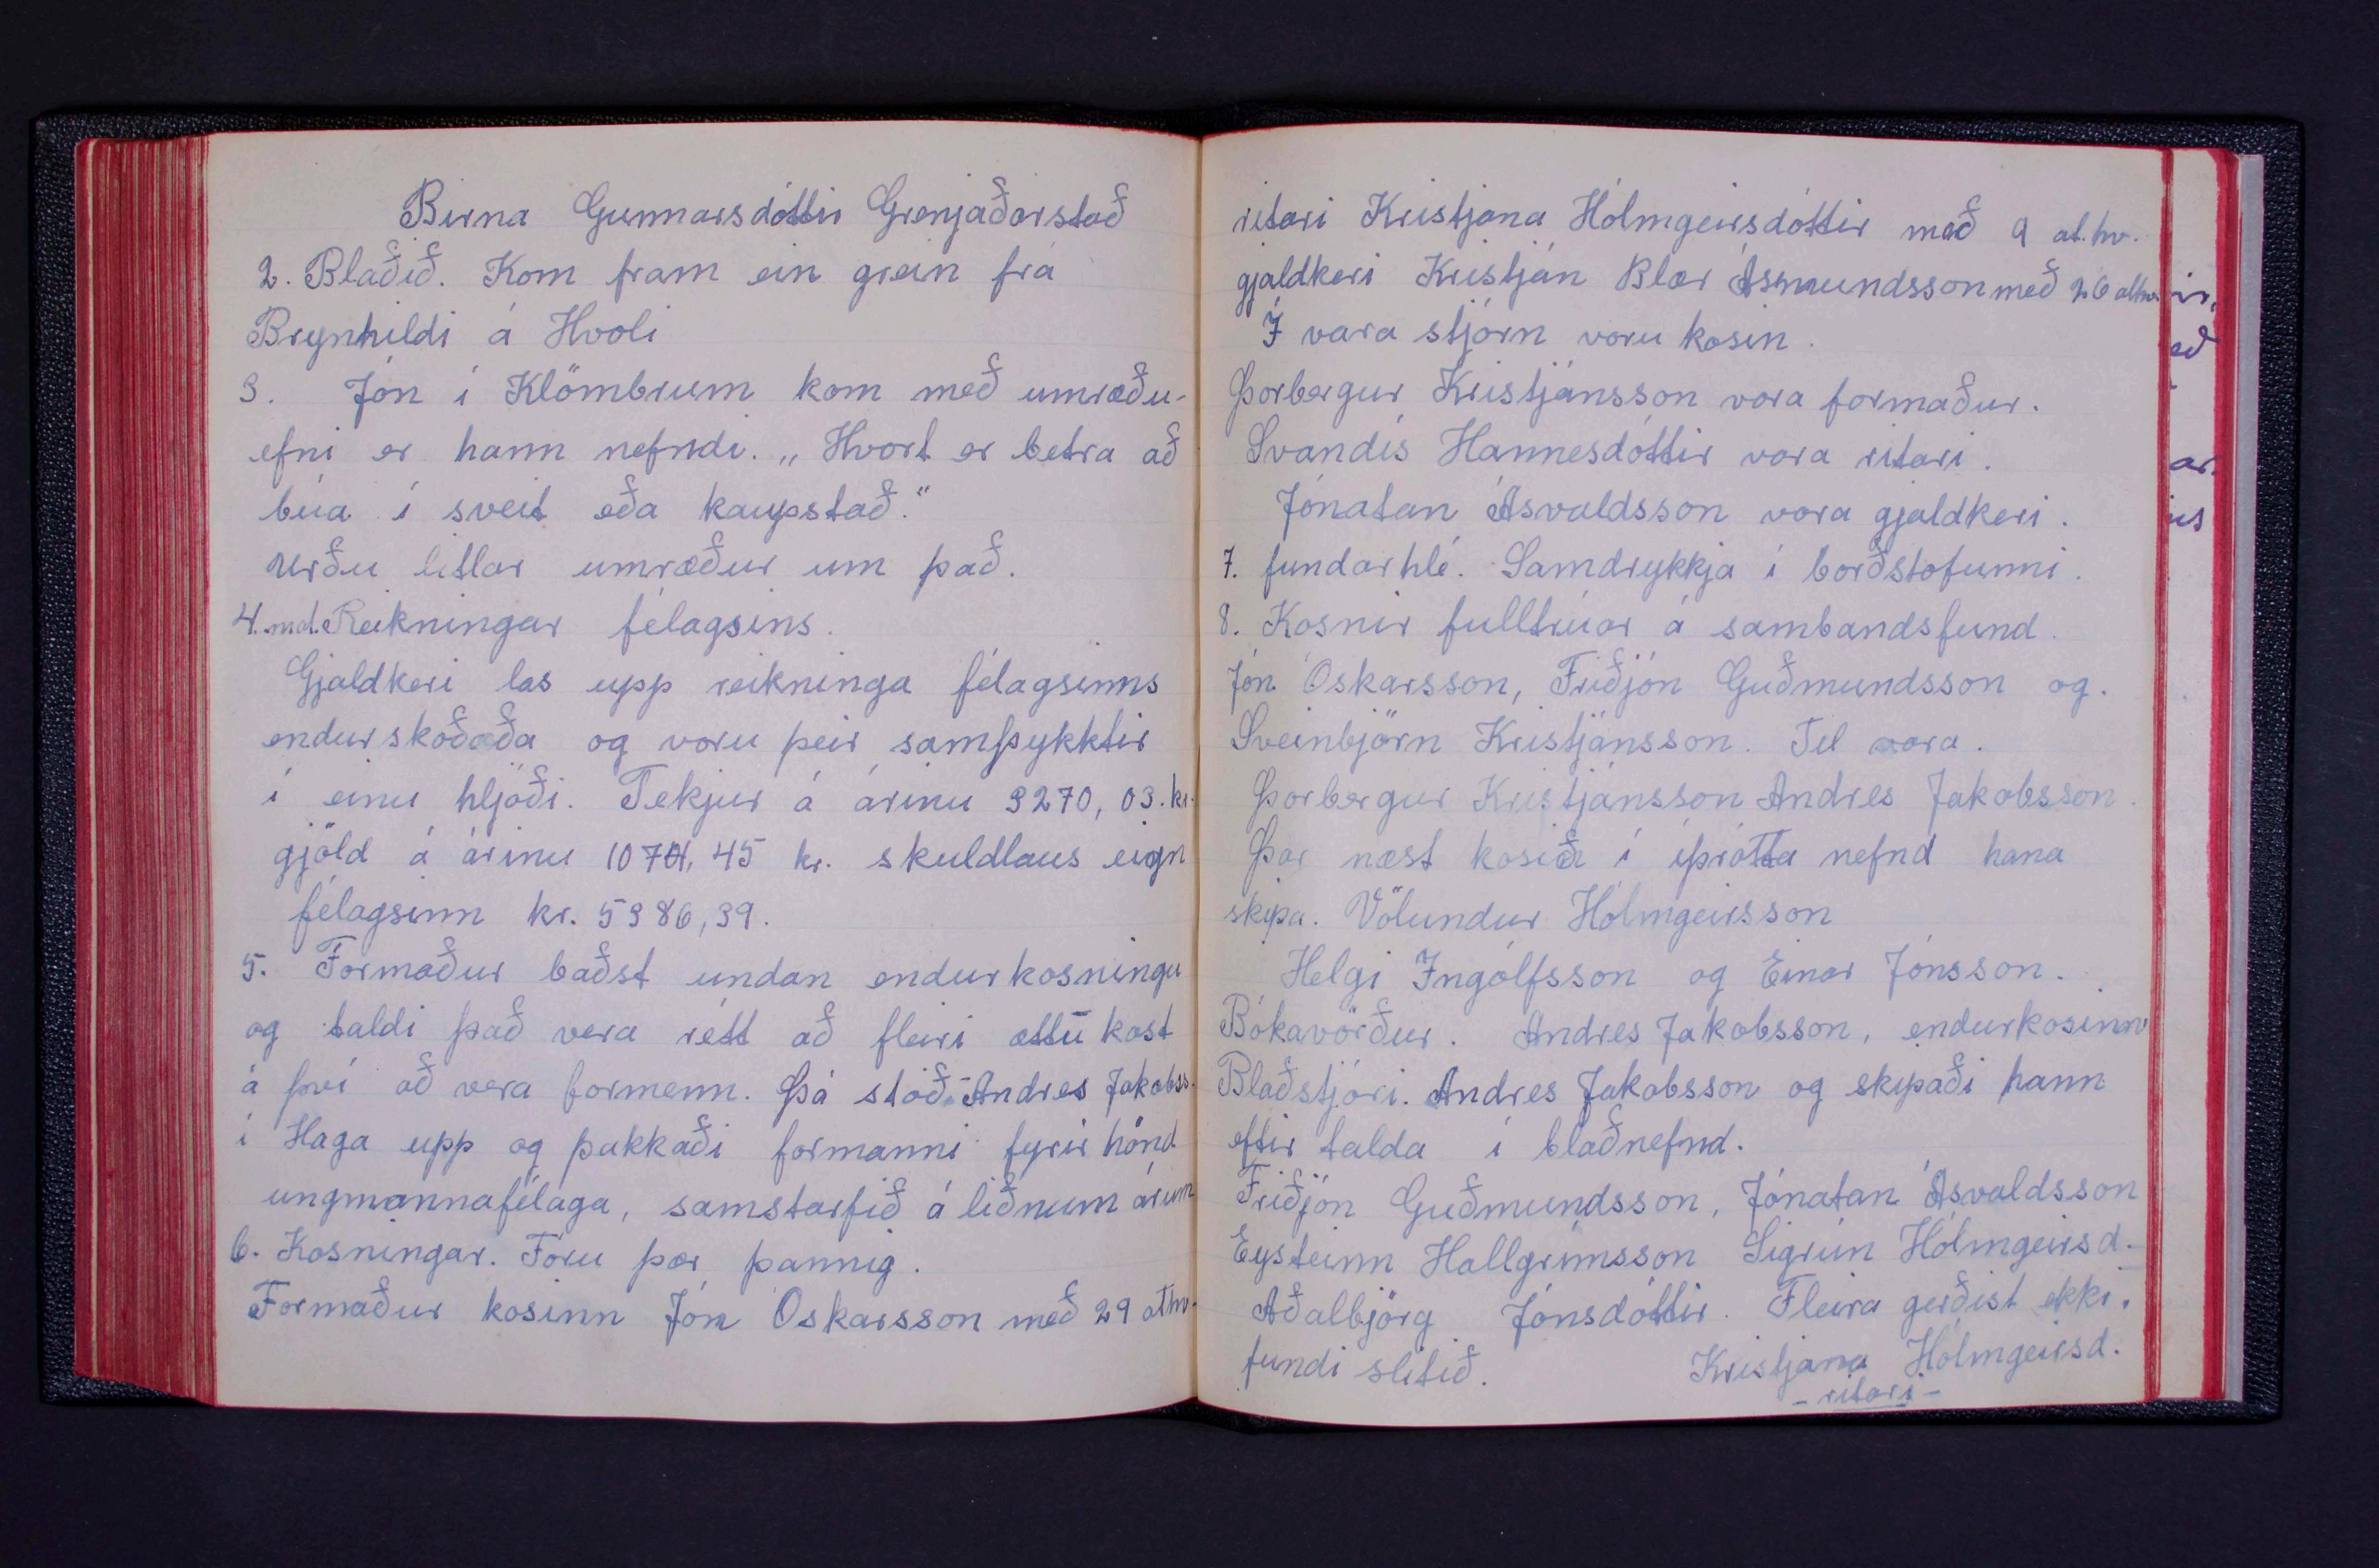 Birna Gunnarsdóttir Grenjaðarstað
2. Blaðið. Kom fram ein grein frá
Brynhildi á Hvoli
3. Jón í Klömbrum kom með umræðu-
efni er hann nefndi. „Hvort er betra að
búa í sveit eða kaupstað."
Urðu litlar umræður um það.
4. mál. Reikningar félagsins.
Gjaldkeri las upp reikninga félagsinns
endurskoðaða og voru þeir samþykktir
í einu hljóði. Tekjur á árinu 3270,03. kr.
gjöld á árinu 1071,45 kr. skuldlaus eign
félagsinn kr. 5386,39.
5. Formaður baðst undan endurkosningu
og taldi það vera rétt að fleiri ættu kost
á því að vera formenn. Þá stóð Andres Jakobss.
í Haga upp og þakkaði formanni fyrir hönd
ungmannafélaga, samstarfið á liðnum árum
6. Kosningar. Fóru þær þannig.
Formaður kosinn Jón Óskarsson með 29 atkv.
ritari Kristjana Hólmgeirsdóttir með 9 at.kv.
gjaldkeri Kristján Blær Ásmundsson með 26 atkv.
Í vara stjórn voru kosin.
Þorbergur Kristjánsson vara formaður.
Svandís Hannesdóttir vara ritari.
Jónatan Ásvaldsson vara gjaldkeri.
7. fundarhlé. Samdrykkja í borðstofunni.
8. Kosnir fulltrúar á sambandsfund.
Jón Óskarsson, Friðjón Guðmundsson og.
Sveinbjörn Kristjánsson. Til vara.
Þorbergur Kristjánsson Andres Jakobsson.
Þar næst kosið í íþrótta nefnd hana
skipa. Völundur Hólmgeirsson
Helgi Ingólfsson og Einar Jónsson.
Bókavörður. Andres Jakobsson, endurkosinn
Blaðstjóri. Andres Jakobsson og skipaði hann
eftir talda í blaðnefnd.
Friðjón Guðmundsson, Jónatan Ásvaldsson
Eysteinn Hallgrímsson Sigrún Hólmgeirsd.
Aðalbjörg Jónsdóttir. Fleira gerðist ekki.
fundi slitið. Kristjana Hólmgeirsd.
- ritari -